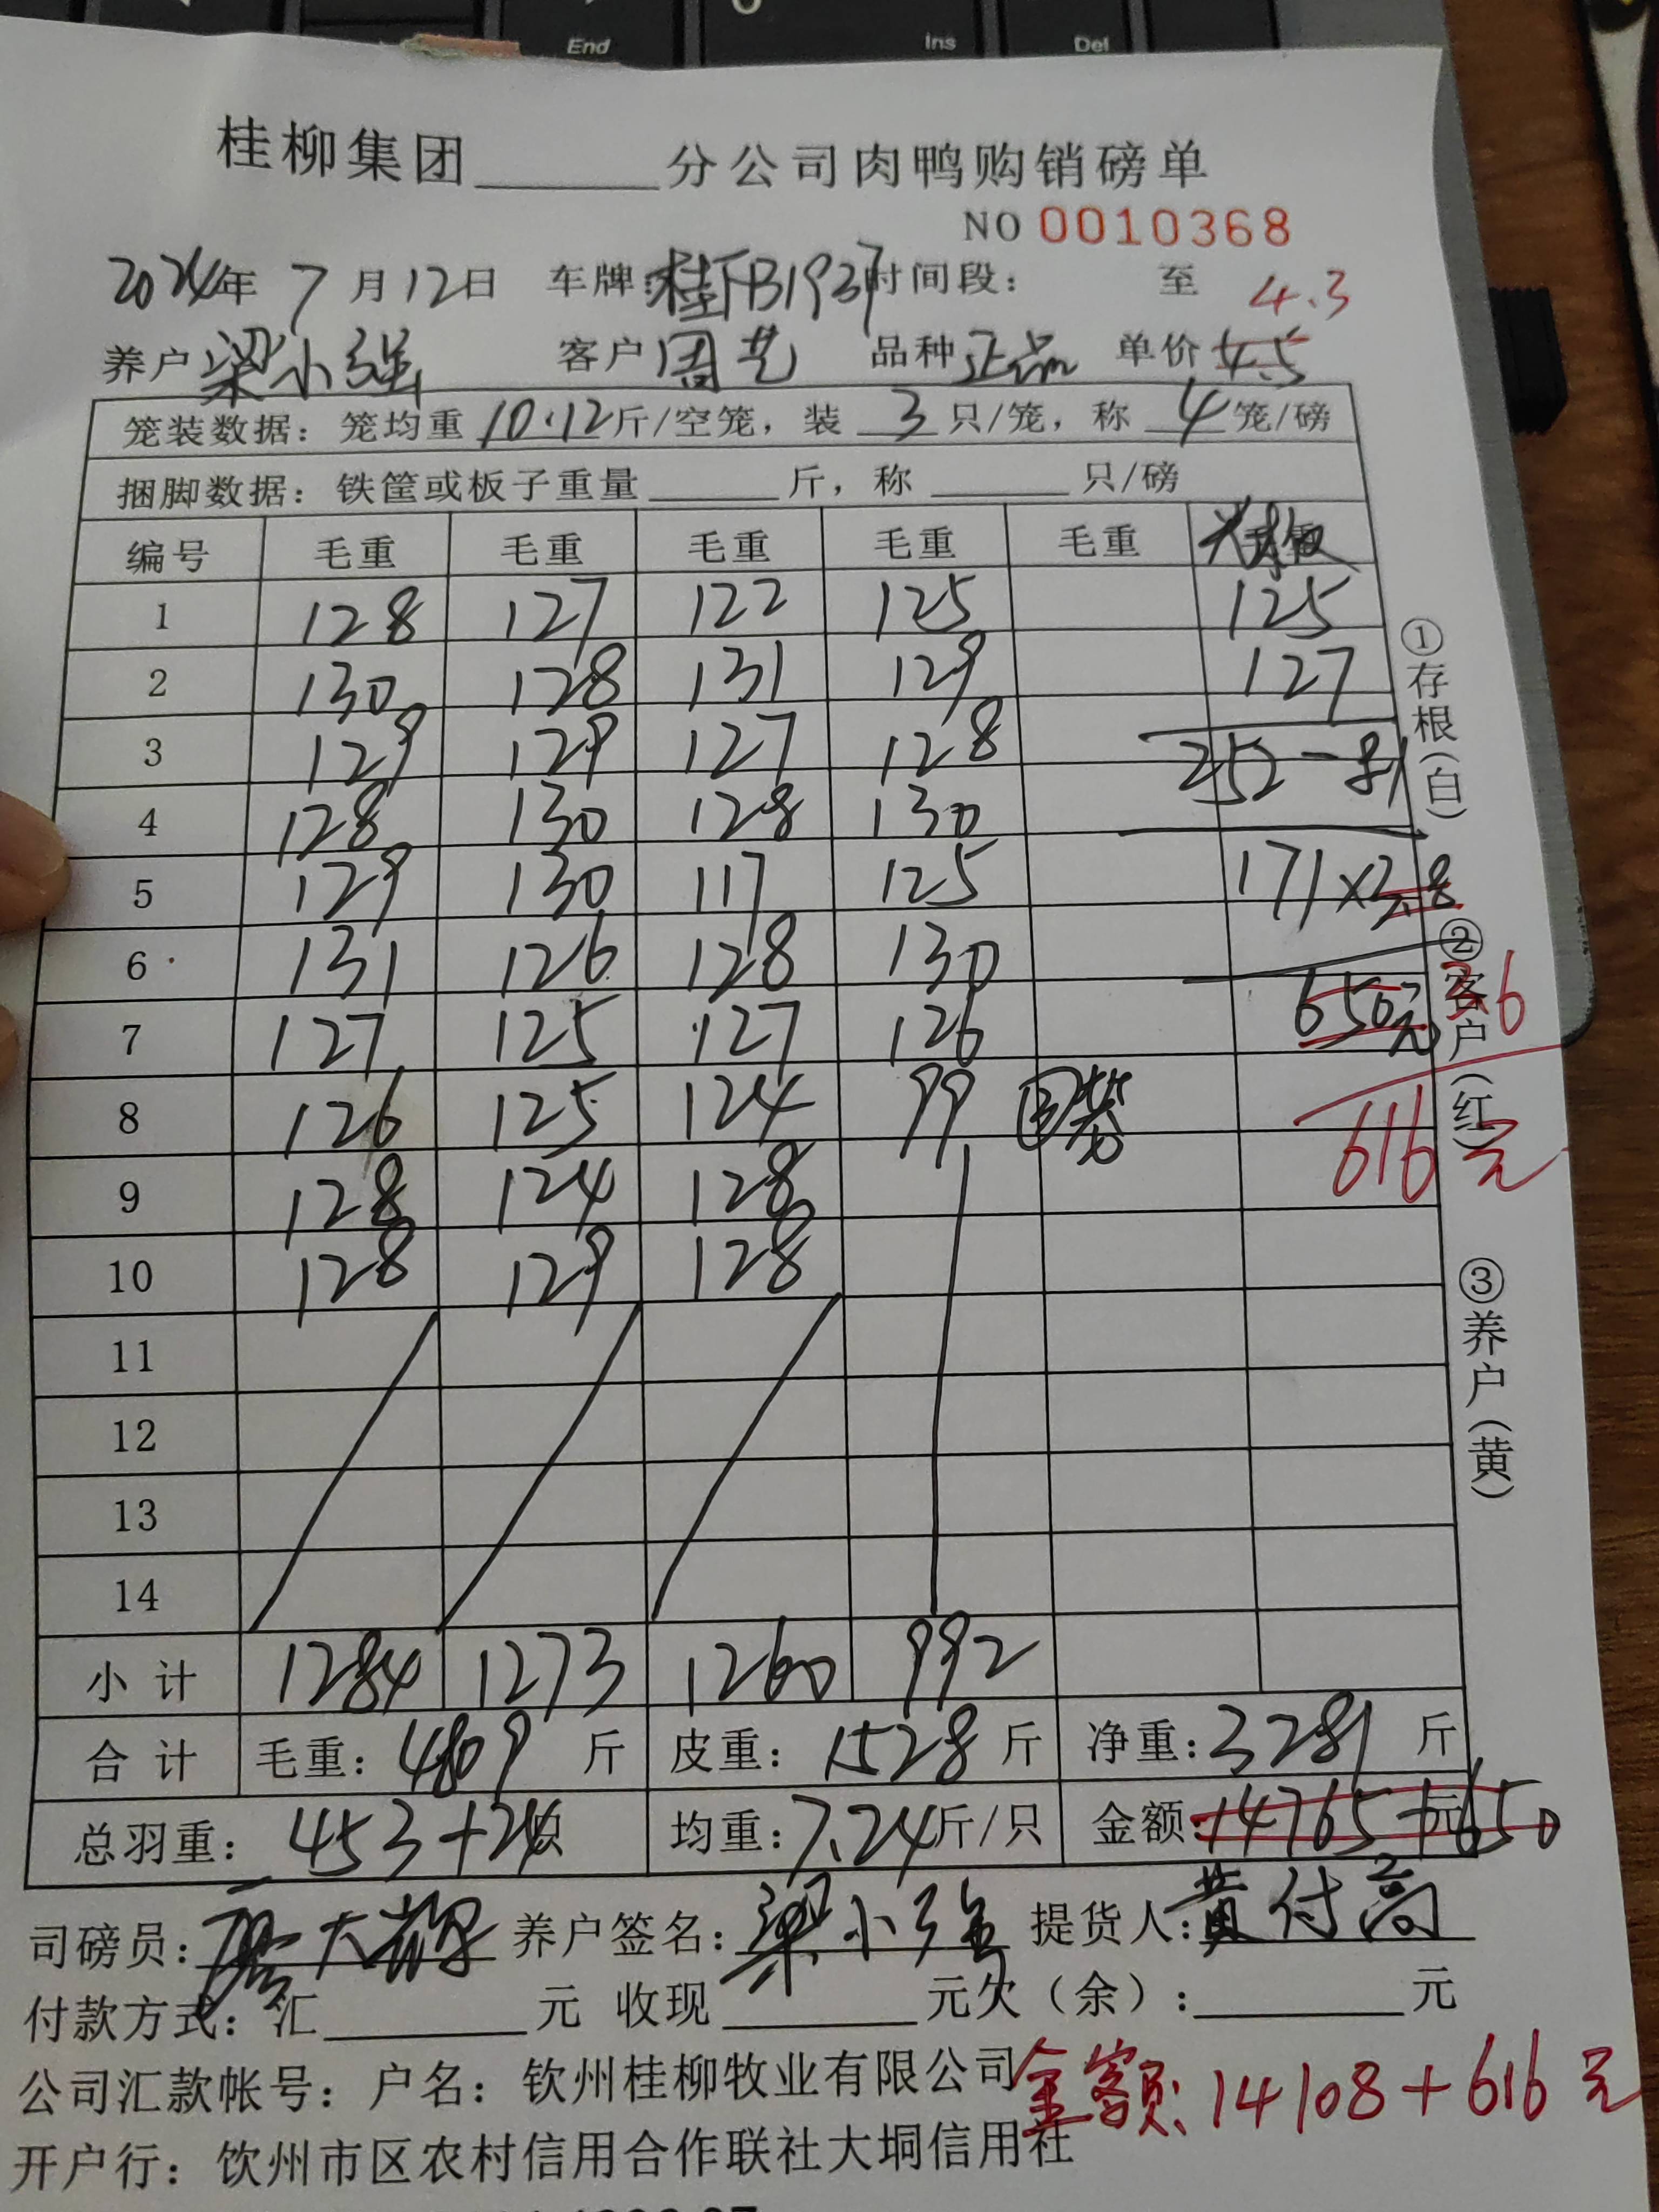 End Ins Del
桂柳集团______分公司肉鸭购销磅单
NO 0010368
2024年 7月12日 车牌:桂FB1937 时间段: 至
4.3
养户 梁小强 客户 周艺 品种 正品 单价 4.5
笼装数据: 笼均重 10.12 斤/空笼, 装 3 只/笼, 称 4 笼/磅
捆脚数据: 铁筐或板子重量______斤, 称______只/磅
编号 毛重 毛重 毛重 毛重 毛重
1 128 127 122 125 125
2 130 128 131 129 127
3 129 129 127 128 252-81
4 128 130 128 130
5 129 130 117 125 171×3.8
6 131 126 128 130
3.6
7 127 125 127 126 650元
8 126 125 124 99
616元
9 128 124 128
10 128 129 128
11
12
13
14
小计 1284 1273 1260 992
合计 毛重: 4809 斤 皮重: 1528 斤 净重: 3281 斤
总羽重: 453+24只 均重: 7.24斤/只 金额: 14765元+650
司磅员: 养户签名: 梁小强 提货人: 黄付高
付款方式: 汇______元 收现______元欠(余):______元
公司汇款帐号: 户名: 钦州桂柳牧业有限公司
金额: 14108+616元
开户行: 钦州市区农村信用合作联社大垌信用社
①存根(白)
②客户(红)
③养户(黄)